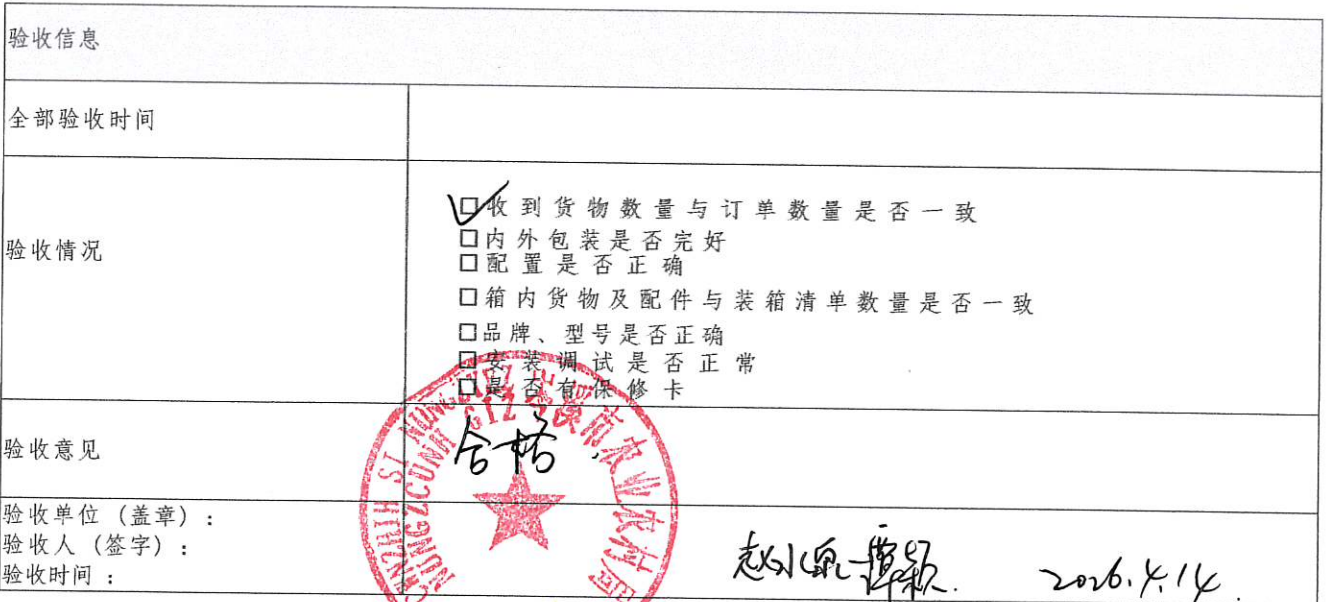 验收信息
全部验收时间
验收情况
□收到货物数量与订单数量是否一致
□内外包装是否完好
□配置是否正确
□箱内货物及配件与装箱清单数量是否一致
□品牌、型号是否正确
□安装调试是否正常
□是否有保修卡
验收意见
合格
岑溪市农业农村局
验收单位（盖章）：
验收人（签字）：
验收时间：
2026.4.14